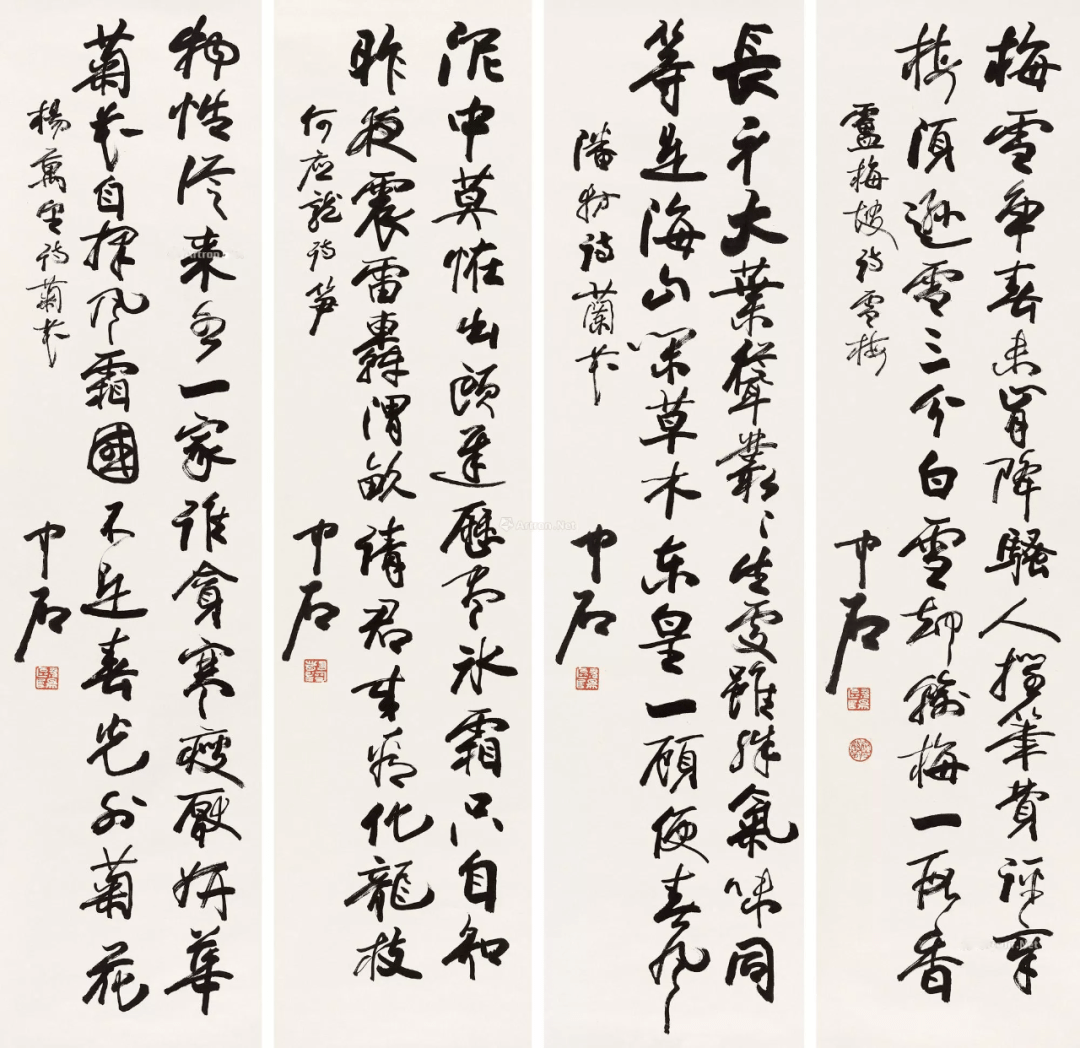 梅雪争春未肯降騷人擱筆費評章
梅須遜雪三分白雪却輸梅一段香
盧梅坡诗雪梅
中石
長干大葉聳叢〻生處雖殊氣味同
等是海山閑草木东皇一顧便春风
潘牥诗蘭花
中石
泥中莫怪出頭遲歷盡冰霜只自知
昨夜震雷轟渭畝請君来看化龍枝
何应龍诗笋
中石
物性從来各一家誰貪寒瘦厭妍華
菊花自擇风霜國不是春光外菊花
楊萬里诗菊花
中石
Artron.Net